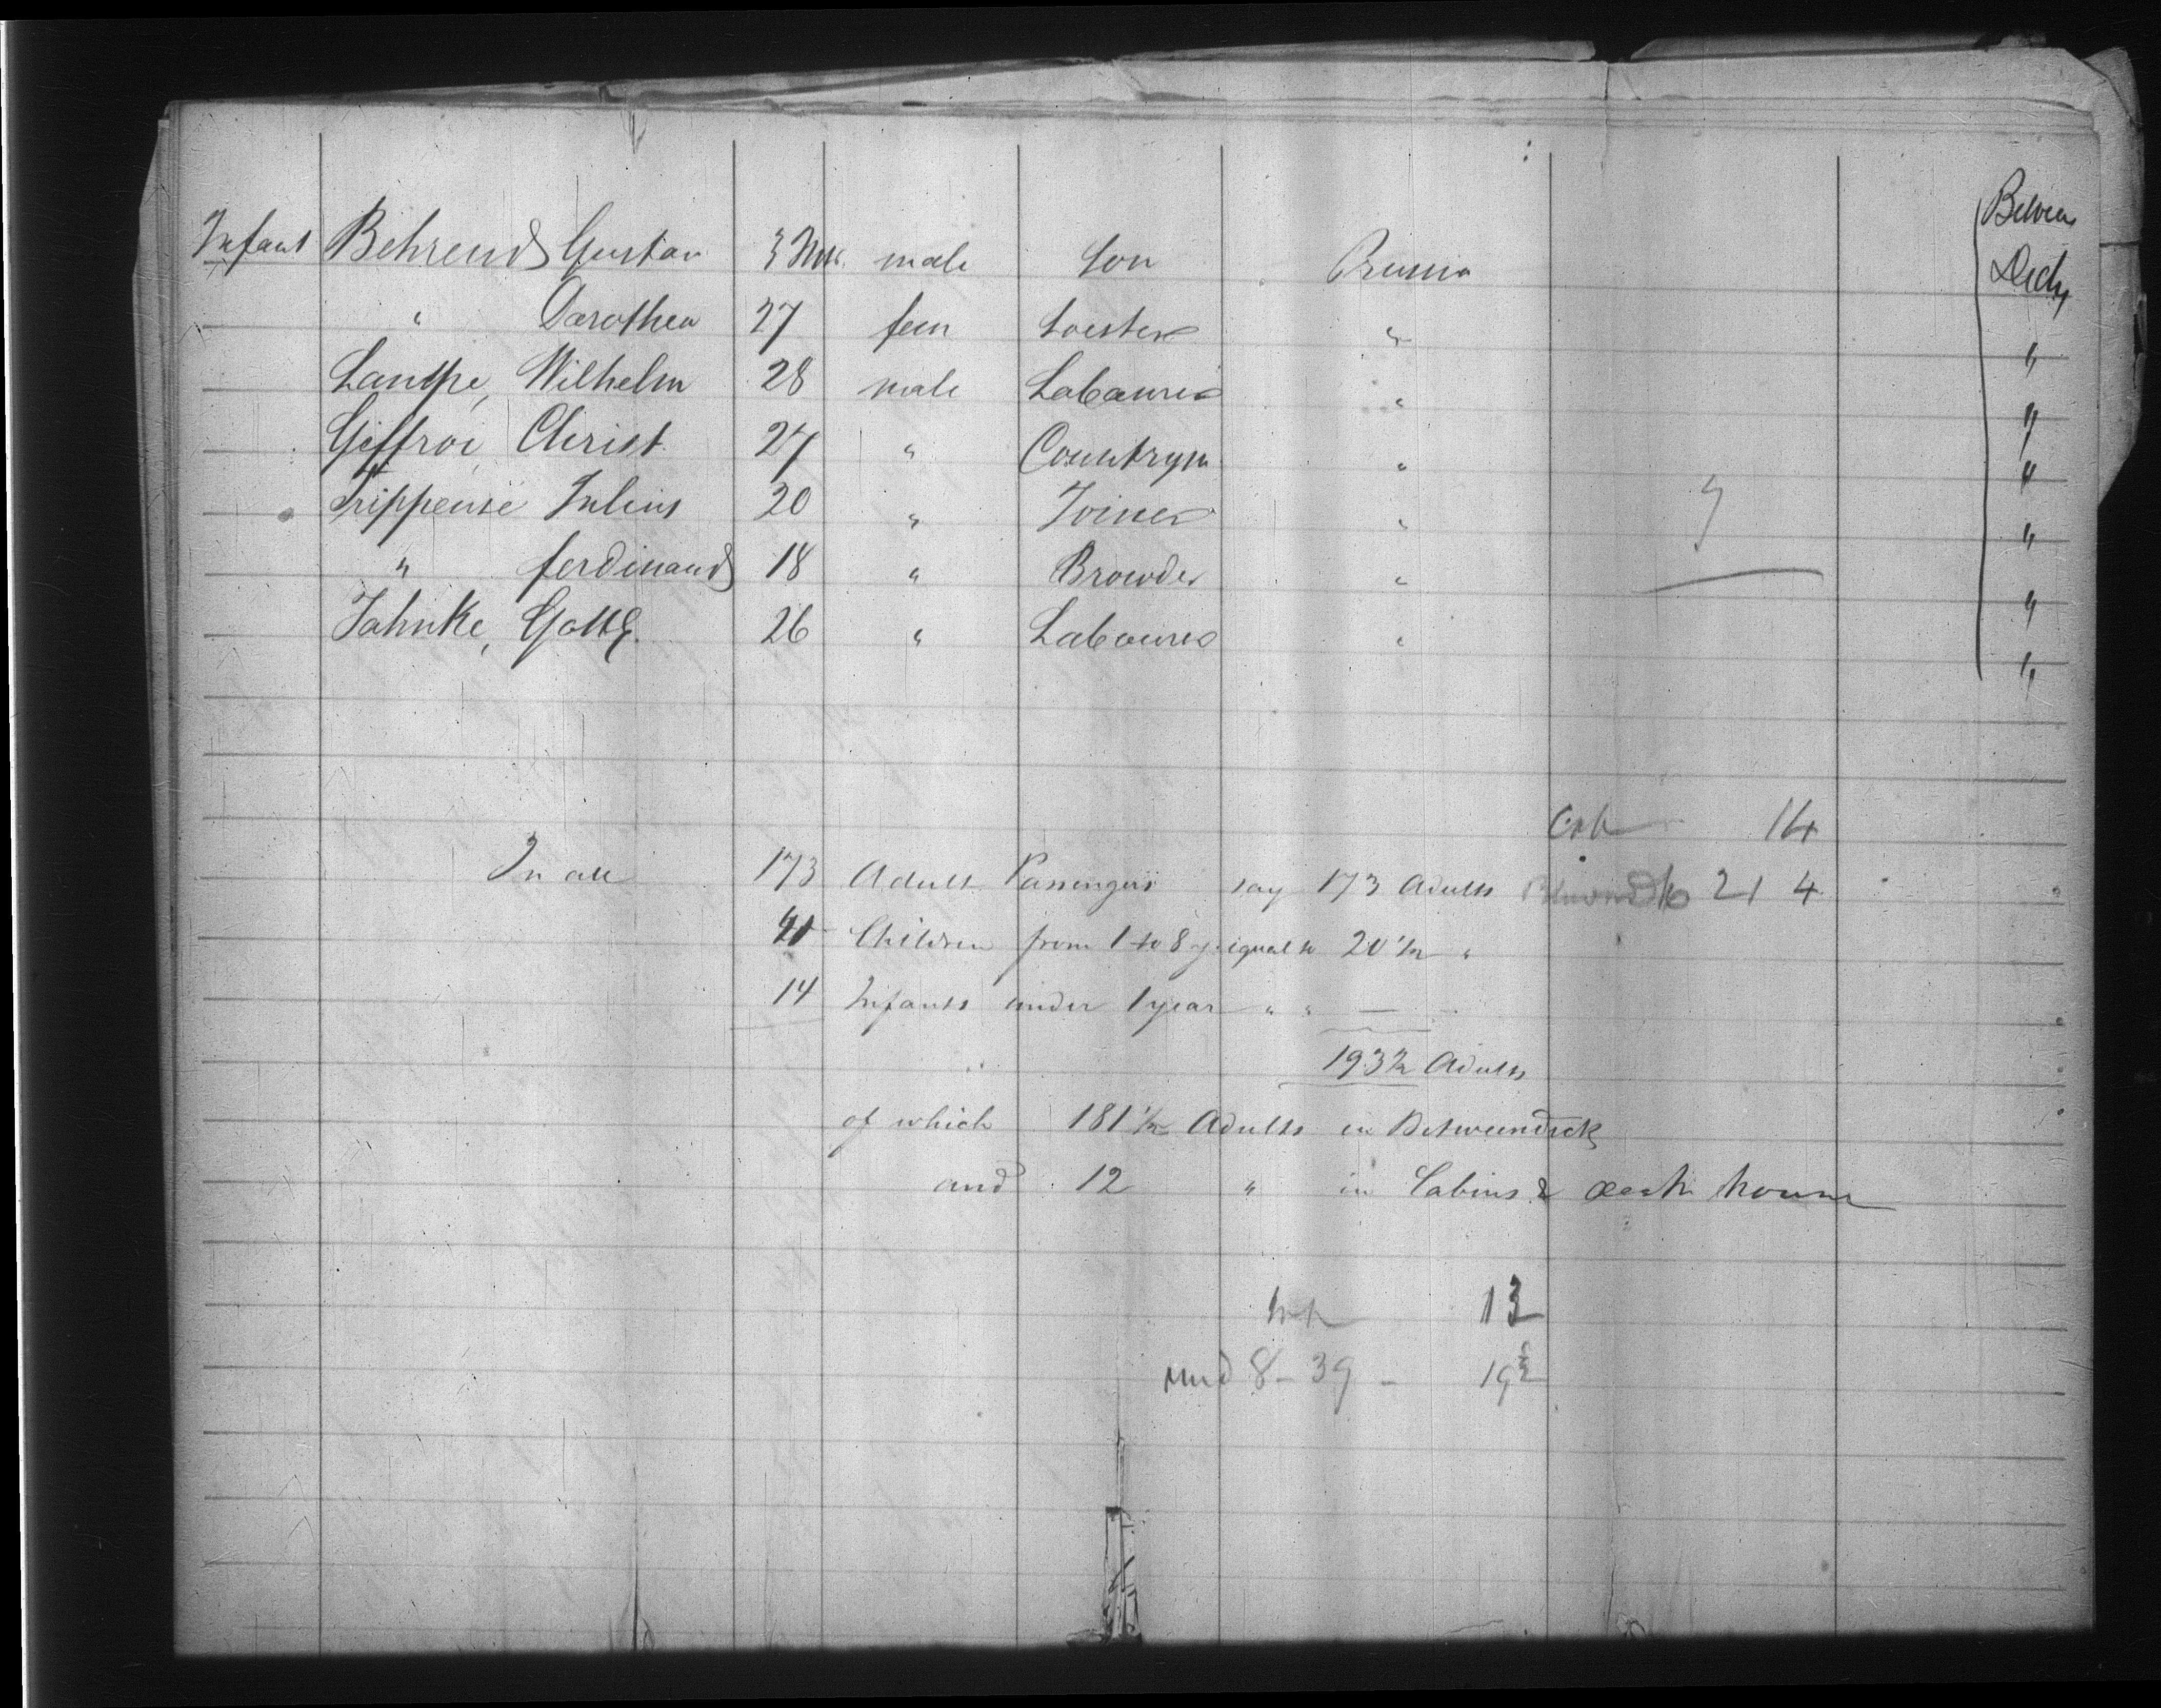 Infant Behrend Gustav 3 Mos. male Son Prussia Betwen
" Dorothea 27 fem Soester " Deck
Lampe, Wilhelm 28 male Labourer " "
Geffroi, Christ. 27 " Countrym. " "
Trippensé Julius 20 " Joiner " "
" ferdinand 18 " Browder " "
Jahnke, Gottl. 26 " Labourer " "
7
Cab 14
In all 173 Adult Passengers say 173 Adults 214
41 Children from 1 to 8 y. equal to 20 1/2 "
14 Infants under 1 year " " —
193 1/2 Adults
of which 181 1/2 Adults in Betweendeck
and 12 " in Cabins & deck house
Inf 13
und 8 - 39 - 19 1/2